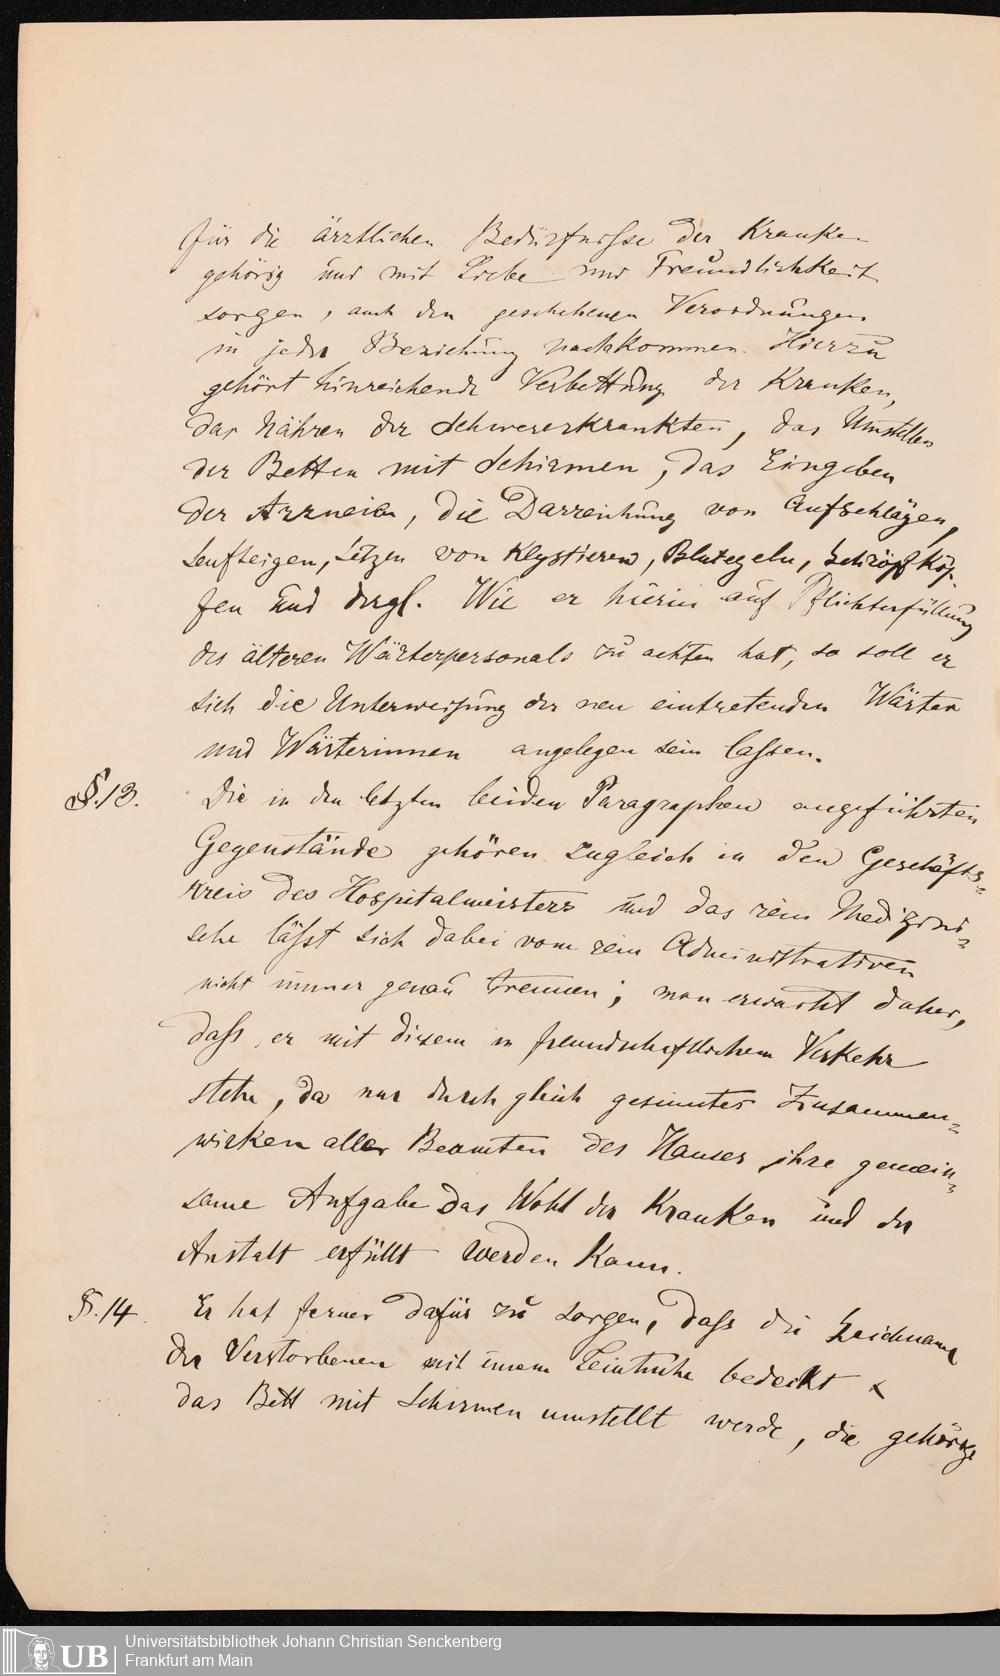 für die ärztlichen Bedürfnisse der Kranken
gehörig und mit Liebe und Freundlichkeit
sorgen, auch den geschehenen Verordnungen
in jeder Beziehung nachkommen. Hierzu
gehört hinreichende Verbettung der Kranken,
das Nähren der Schwererkrankten, das Umstellen
der Betten mit Schirmen, das Eingeben
der Arzneien, die Darreichung von Aufschlägen,
Senfteigen, Setzen von Klystieren, Blutegeln, Schröpfköp-
fen und drgl. Wie er hierin auf Pflichterfüllung
des älteren Wärterpersonals zu achten hat, so soll er
sich die Unterweisung der neu eintretenden Wärter
und Wärterinnen angelegen sein lassen.
§.13. Die in den letzten beiden Paragraphen angeführten
Gegenstände gehören zugleich in den Geschäfts-
kreis des Hospitalmeisters und das rein Medizini-
sche läßt sich dabei vom rein Administrativen
nicht immer genau trennen; man erwartet daher,
daß er mit diesem in freundschaftlichem Verkehr
stehe, da nur durch gleich gesinntes Zusammen-
wirken aller Beamten des Hauses ihre gemein-
same Aufgabe das Wohl der Kranken und der
Anstalt erfüllt werden kann.
§.14. Er hat ferner dafür zu sorgen, daß die Leichname
der Verstorbenen mit einem Leintuche bedeckt &
das Bett mit Schirmen umstellt werde, die gehörige
UB Universitätsbibliothek Johann Christian Senckenberg
Frankfurt am Main